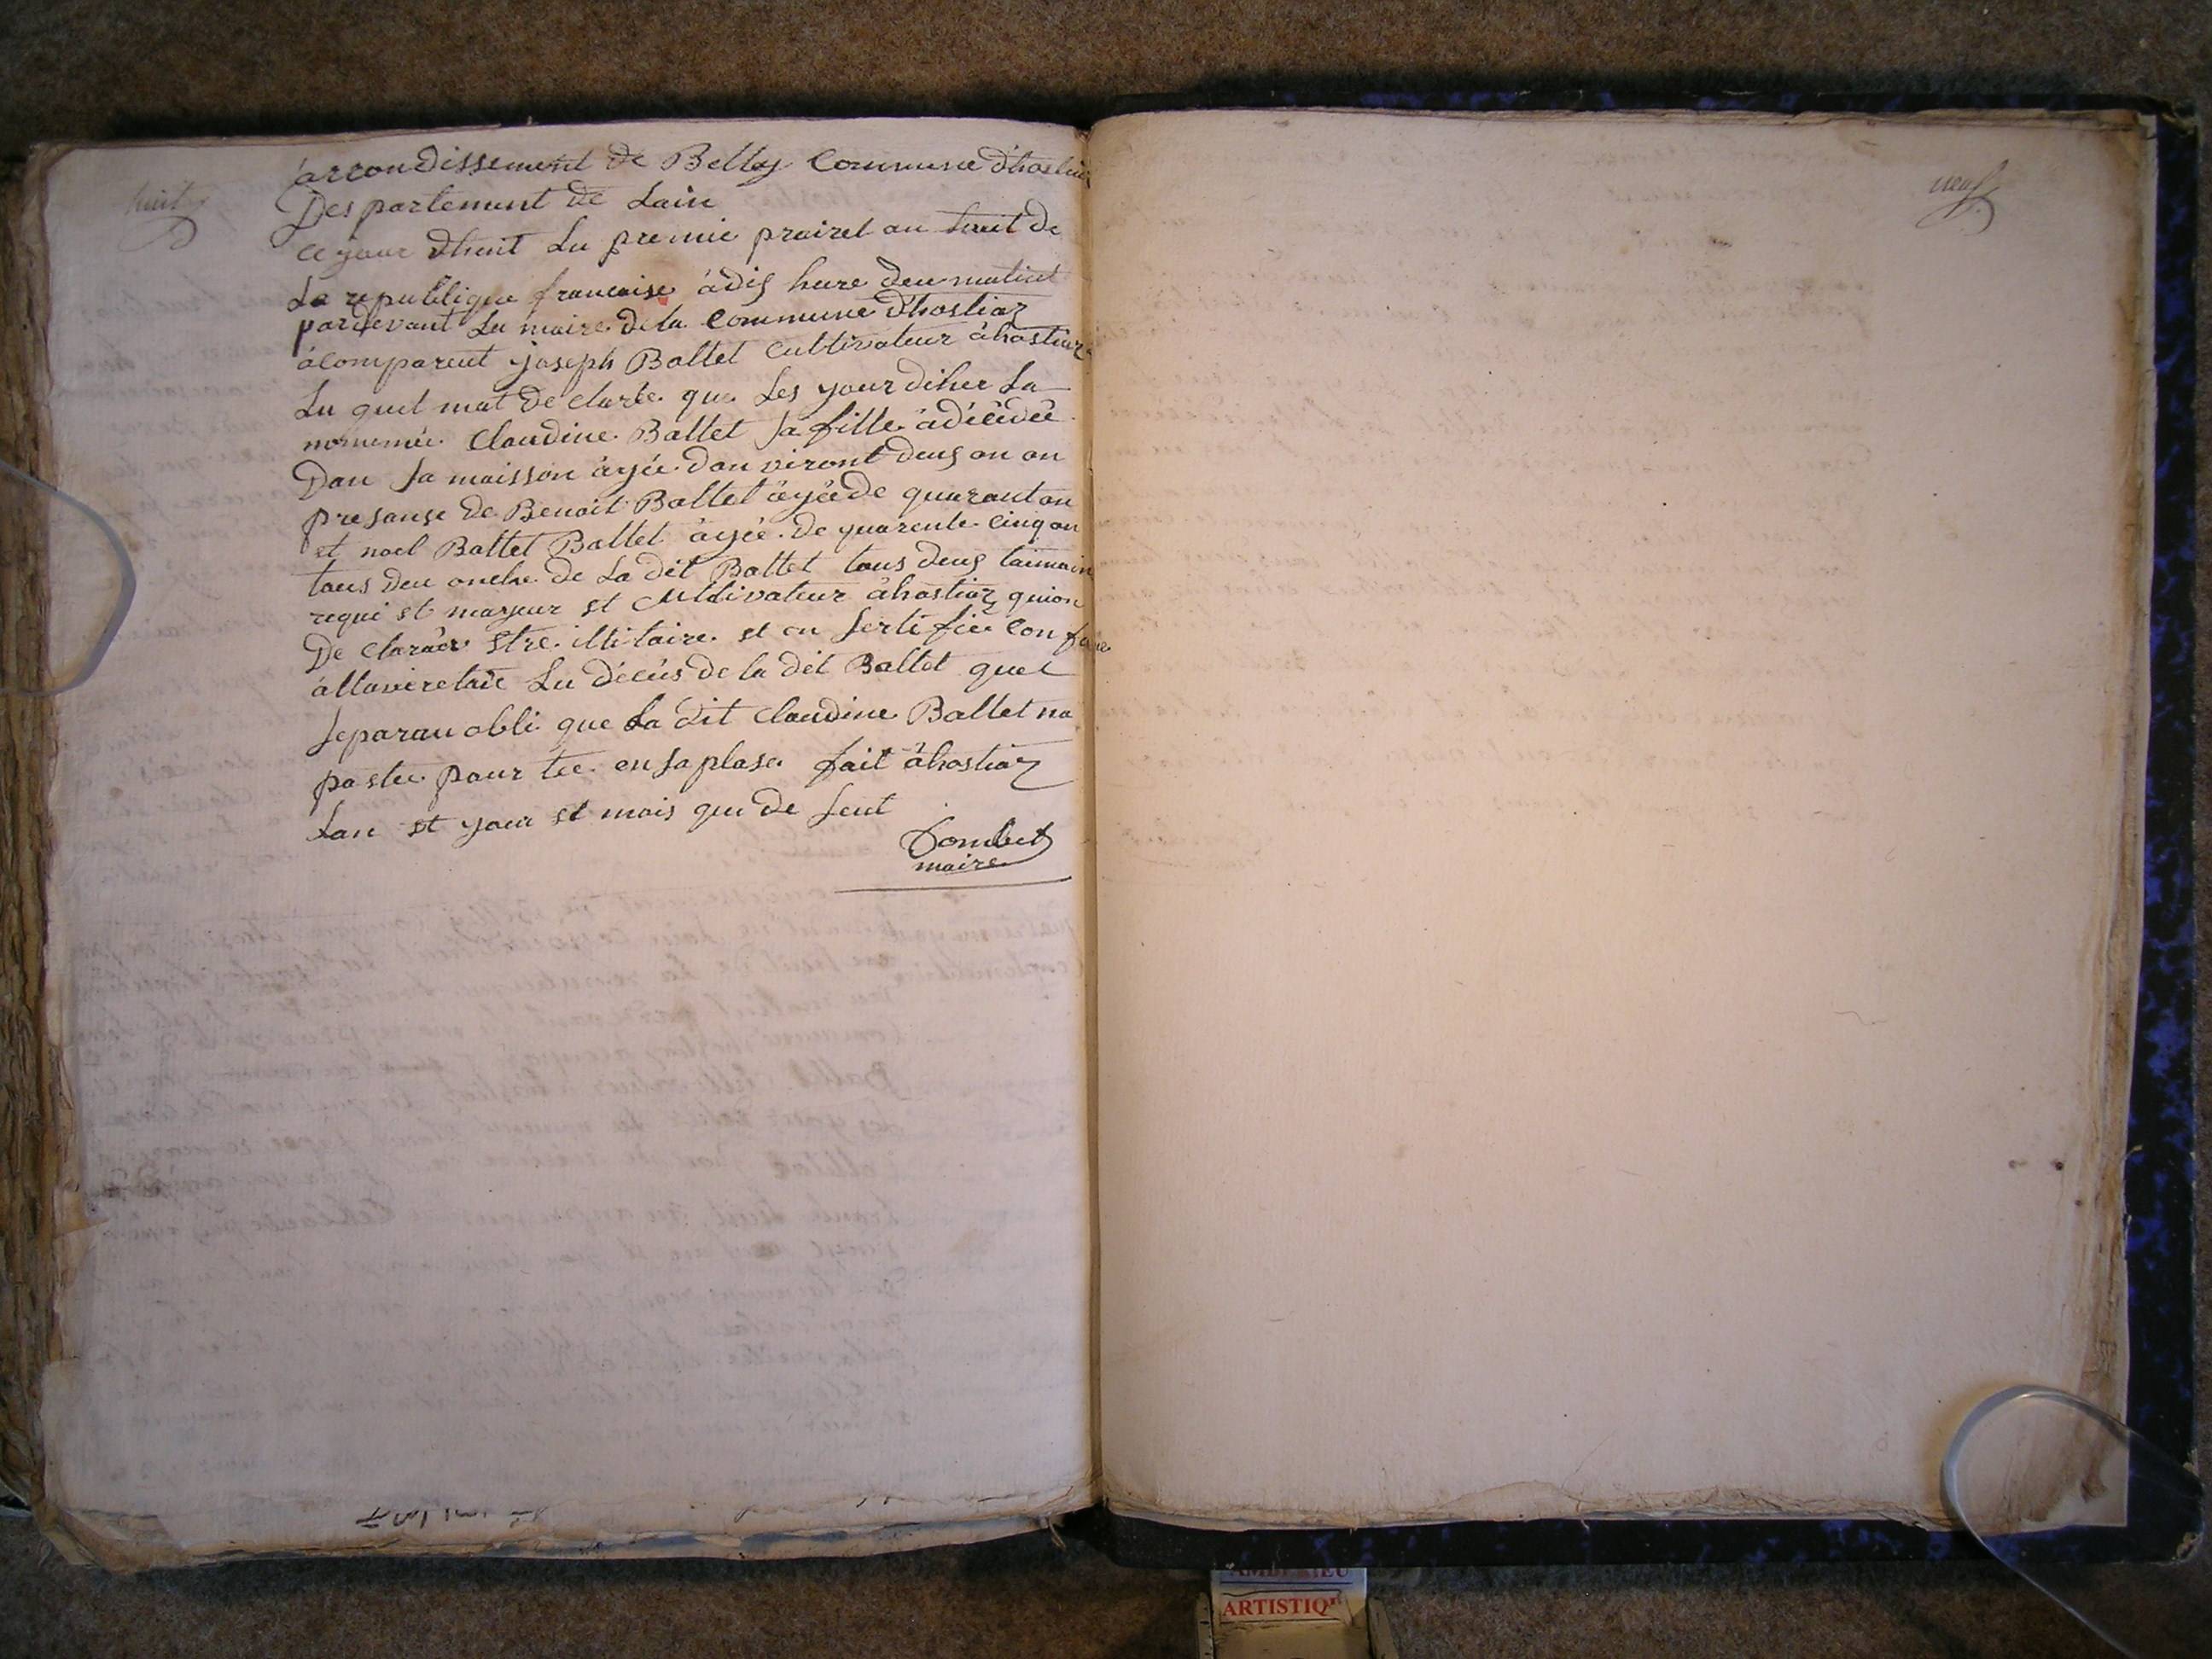 huit
arrondissement de Belley Commune dhostiaz
Des partement de Lain
ce jour dhuit Lu premie prairel an huit de
La republique francaise àdis hure deu matint
pardevant Lu maire dela Commune dhostiaz
àcomparent joseph Ballet Cultivateur àhostiaz
Lu quel mat de clarle que Les your diher La
nommée Claudine Ballet sa fille àdécédée
Dan sa maisson àgée dan viront deus an an
presanse de Benoit Ballet àgéede quarant an
et noel Ballet Ballet àgée de quarente cinq an
tous deu oncle de La dit Ballet tous deus taimoin
requi et mayeur et Cultivateur àhostiaz quion
De claràer etre illitaire et an sertifiée Con forme
àllaveretaie Lu décés de la dit Ballet quel
separau obli que La dit Claudine Ballet na
pastée pour tée en saplase fait àhostiaz
Lan et your et mois que de seut
Gombet
maire
neuf
ARTISTIQ